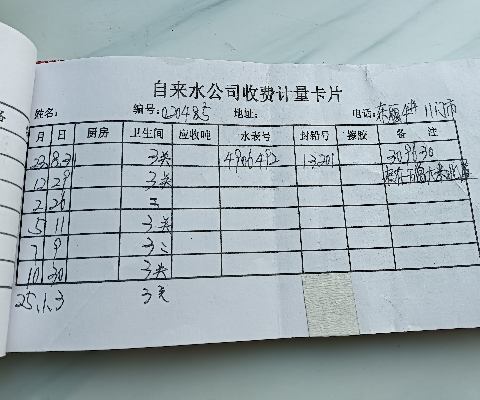 自来水公司收费计量卡片
姓名: 编号: 020485 地址: 电话: 东 4# 11门市
月 日 厨房 卫生间 应收吨 水表号 封铅号 橡胶 备 注
3关 4906492 13201 309830
12 29 3关
2 26
5 11 3关
7 9
10 30 3关
25.1.3 3关